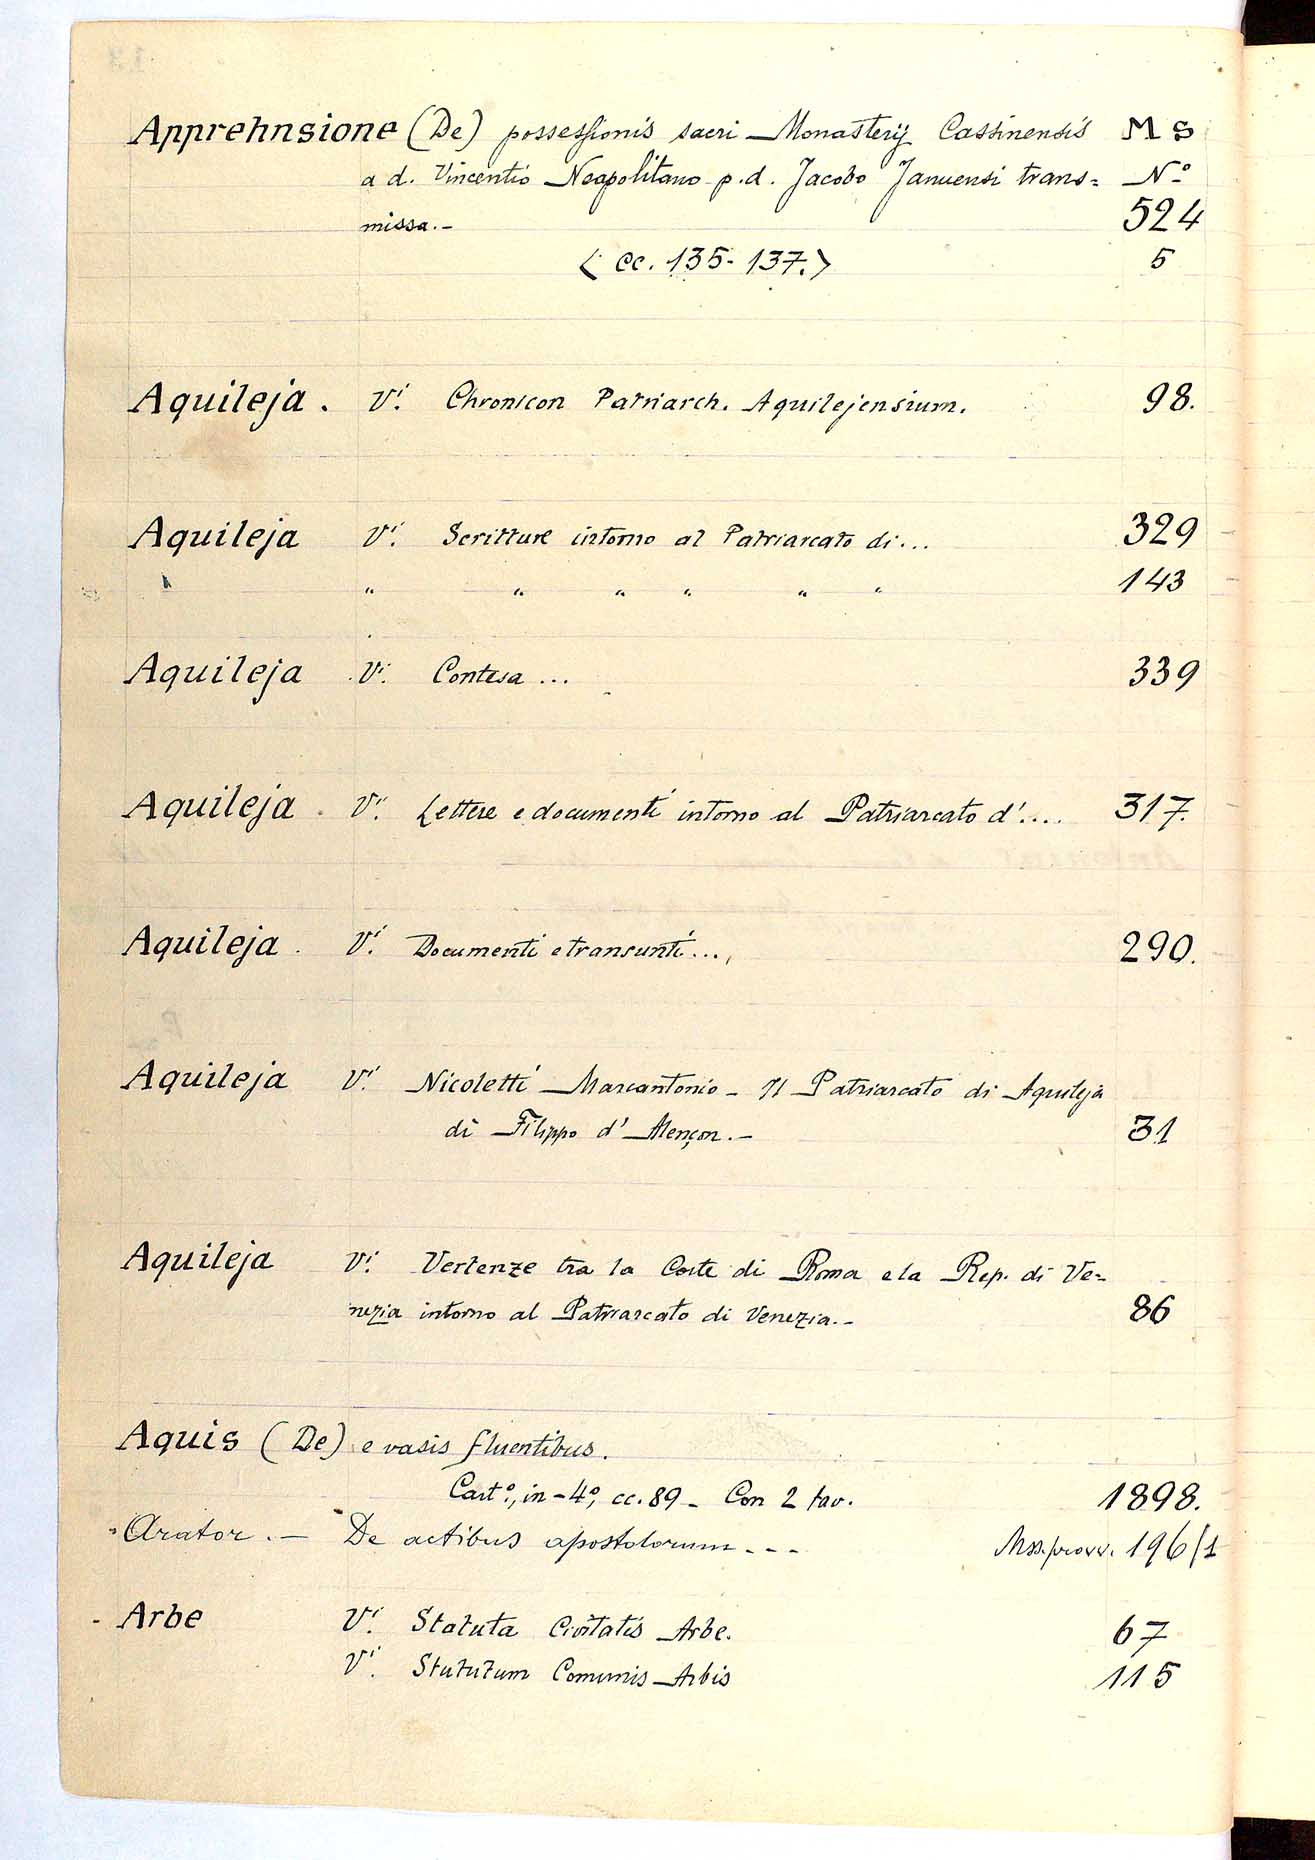 Apprehnsione (De) possessionis sacri Monasterij Cassinensis MS
a d. Vincentio Neapolitano p. d. Jacobo Januensi trans= Nº
missa.- 524
(cc. 135-137.) 5
Aquileja. Vi. Chronicon Patriarch. Aquilejensium. 98.
Aquileja Vi. Scritture intorno al Patriarcato di... 329
" " " " " " 143
Aquileja Vi. Contesa ... 339
Aquileja Vi. Lettere e documenti intorno al Patriarcato d'.... 317.
Aquileja Vi. Documenti e transunti.... 290.
Aquileja Vi. Nicoletti Marcantonio - Il Patriarcato di Aquileja
di Filippo d' Alençon.- 31
Aquileja Vi. Vertenze tra la Corte di Roma e la Rep. di Ve=
nezia intorno al Patriarcato di Venezia.- 86
Aquis (De) e vasis fluentibus.
Cart.º, in-4º, cc. 89 - Con 2 tav. 1898.
Arator.- De actibus apostolorum --- Mss. provv. 196/1
- Arbe Vi. Statuta Civitatis Arbe. 67
Vi. Statutum Comunis Arbis 115